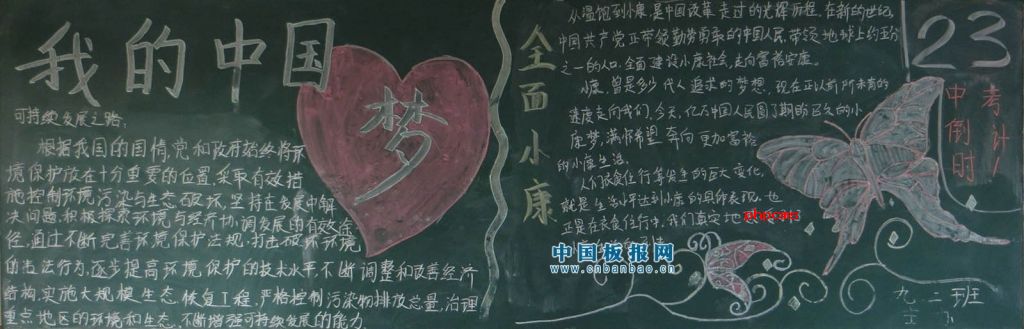 我的中国
梦
可持续发展之路：
根据我国的国情，党和政府始终将环
境保护放在十分重要的位置，采取有效措
施控制环境污染与生态破坏，坚持在发展中解
决问题，积极探索环境与经济协调发展的有效途
径，通过不断完善环境保护法规，打击破坏环境
的违法行为，逐步提高环境保护的技术水平，不断调整和改善经济
结构，实施大规模生态恢复工程，严格控制污染物排放总量，治理
重点地区的环境和生态，不断增强可持续发展的能力。
全面小康
从温饱到小康，是中国改革走过的光辉历程，在新的世纪，
中国共产党正带领勤劳勇敢的中国人民，带领地球上约五分
之一的人口，全面建设小康社会，走向富裕安康。
小康，曾是多少代人追求的梦想，现在正以前所未有的
速度走向我们。今天，亿万中国人民圆了期盼已久的小
康梦，满怀希望奔向更加富裕
的小康生活。
人们衣食住行等发生的巨大变化，
就是生活水平达到小康的具体表现，也
正是在衣食住行中，我们真实地
23
中考倒计时
中国板报网
www.cnbanbao.cn
九 二班